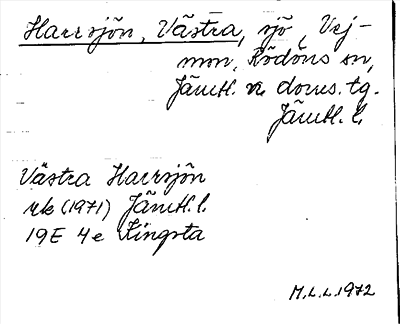 Harrsjön, Västra, sjö, Vej-
mon, Rödöns sn,
Jämtl. n. doms. tg.
Jämtl. l.
Västra Harrsjön
rk (1971) Jämtl. l.
19E 4e Kingsta
M.L.L. 1972